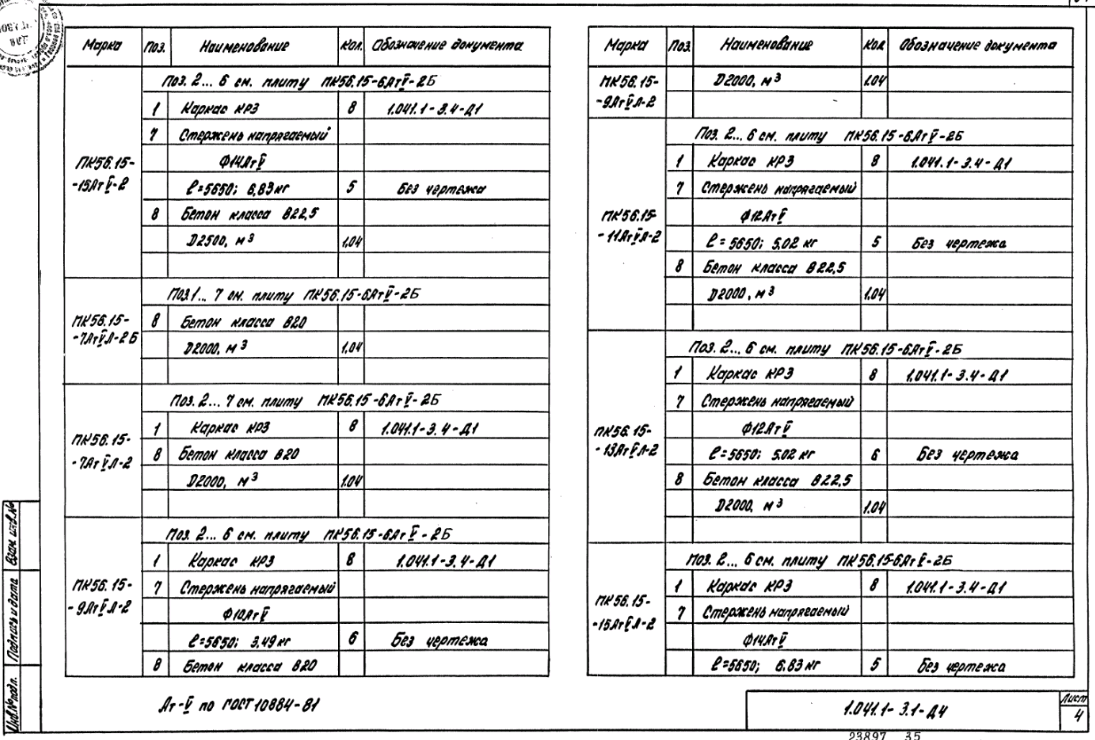 Марка Поз. Наименование Кол. Обозначение документа
ПК56.15-
-15АтV-2
Поз. 2... 6 см. плиту ПК56.15-6АтV-2Б
1 Каркас КР3 8 1.041.1-3.4-Д1
7 Стержень напрягаемый
Ф14АтV
ℓ=5650; 6,83 кг 5 Без чертежа
8 Бетон класса В22,5
D2500, м3 1,04
ПК56.15-
-7АтVЛ-2Б
Поз.1... 7 см. плиту ПК56.15-6АтV-2Б
8 Бетон класса В20
D2000, м3 1,04
ПК56.15-
-7АтVЛ-2
Поз. 2... 7 см. плиту ПК56.15-6АтV-2Б
1 Каркас КР3 8 1.041.1-3.4-Д1
8 Бетон класса В20
D2000, м3 1,04
ПК56.15-
-9АтVЛ-2
Поз. 2... 6 см. плиту ПК56.15-6АтV-2Б
1 Каркас КР3 8 1.041.1-3.4-Д1
7 Стержень напрягаемый
Ф10АтV
ℓ=5650; 3,49 кг 6 Без чертежа
8 Бетон класса В20
Марка Поз. Наименование Кол. Обозначение документа
ПК56.15-
-9АтVЛ-2
D2000, м3 1,04
ПК56.15-
-11АтVЛ-2
Поз. 2... 6 см. плиту ПК56.15-6АтV-2Б
1 Каркас КР3 8 1.041.1-3.4-Д1
7 Стержень напрягаемый
Ф12АтV
ℓ=5650; 5,02 кг 5 Без чертежа
8 Бетон класса В22,5
D2000, м3 1,04
ПК56.15-
-13АтVЛ-2
Поз. 2... 6 см. плиту ПК56.15-6АтV-2Б
1 Каркас КР3 8 1.041.1-3.4-Д1
7 Стержень напрягаемый
Ф12АтV
ℓ=5650; 5,02 кг 6 Без чертежа
8 Бетон класса В22,5
D2000, м3 1,04
ПК56.15-
-15АтVЛ-2
Поз. 2... 6 см. плиту ПК56.15-6АтV-2Б
1 Каркас КР3 8 1.041.1-3.4-Д1
7 Стержень напрягаемый
Ф14АтV
ℓ=5650; 6,83 кг 5 Без чертежа
Ат-V по ГОСТ 10884-81
1.041.1-3.1-Д4
Лист
4
23897 35
Взам. инв.№
Подпись и дата
Инв.№ подл.